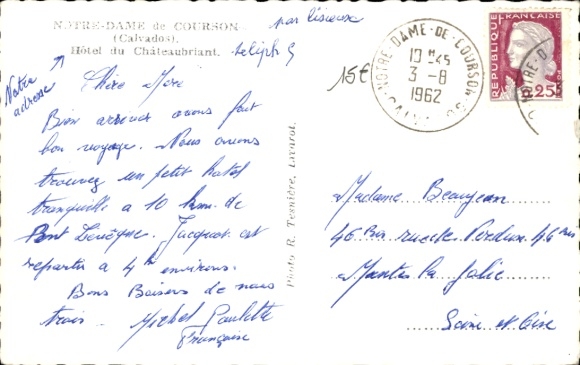 NOTRE-DAME de COURSON
(Calvados).
Hôtel du Châteaubriant.
par Lisieux
téléph 9
Notre
adresse
Chère Mère
Bien arrivés avons fait
bon voyage. Nous avons
trouvez un petit hotel
tranquille a 10 km de
Pont Levêque. Jacquot est
repartir a 4h environs.
Bons Baisers de nous
trois. Michel Paulette
Françoise
Photo R. Tesnière, Livarot.
15f
NOTRE-DAME-DE-COURSON
10 H45
3-8
1962
CALVADOS
REPUBLIQUE FRANÇAISE
0,25
NOTRE-D
Madame Beaujean
46 Bis rue de Verdun 46 Bis
Mantes la Jolie
Seine et Oise